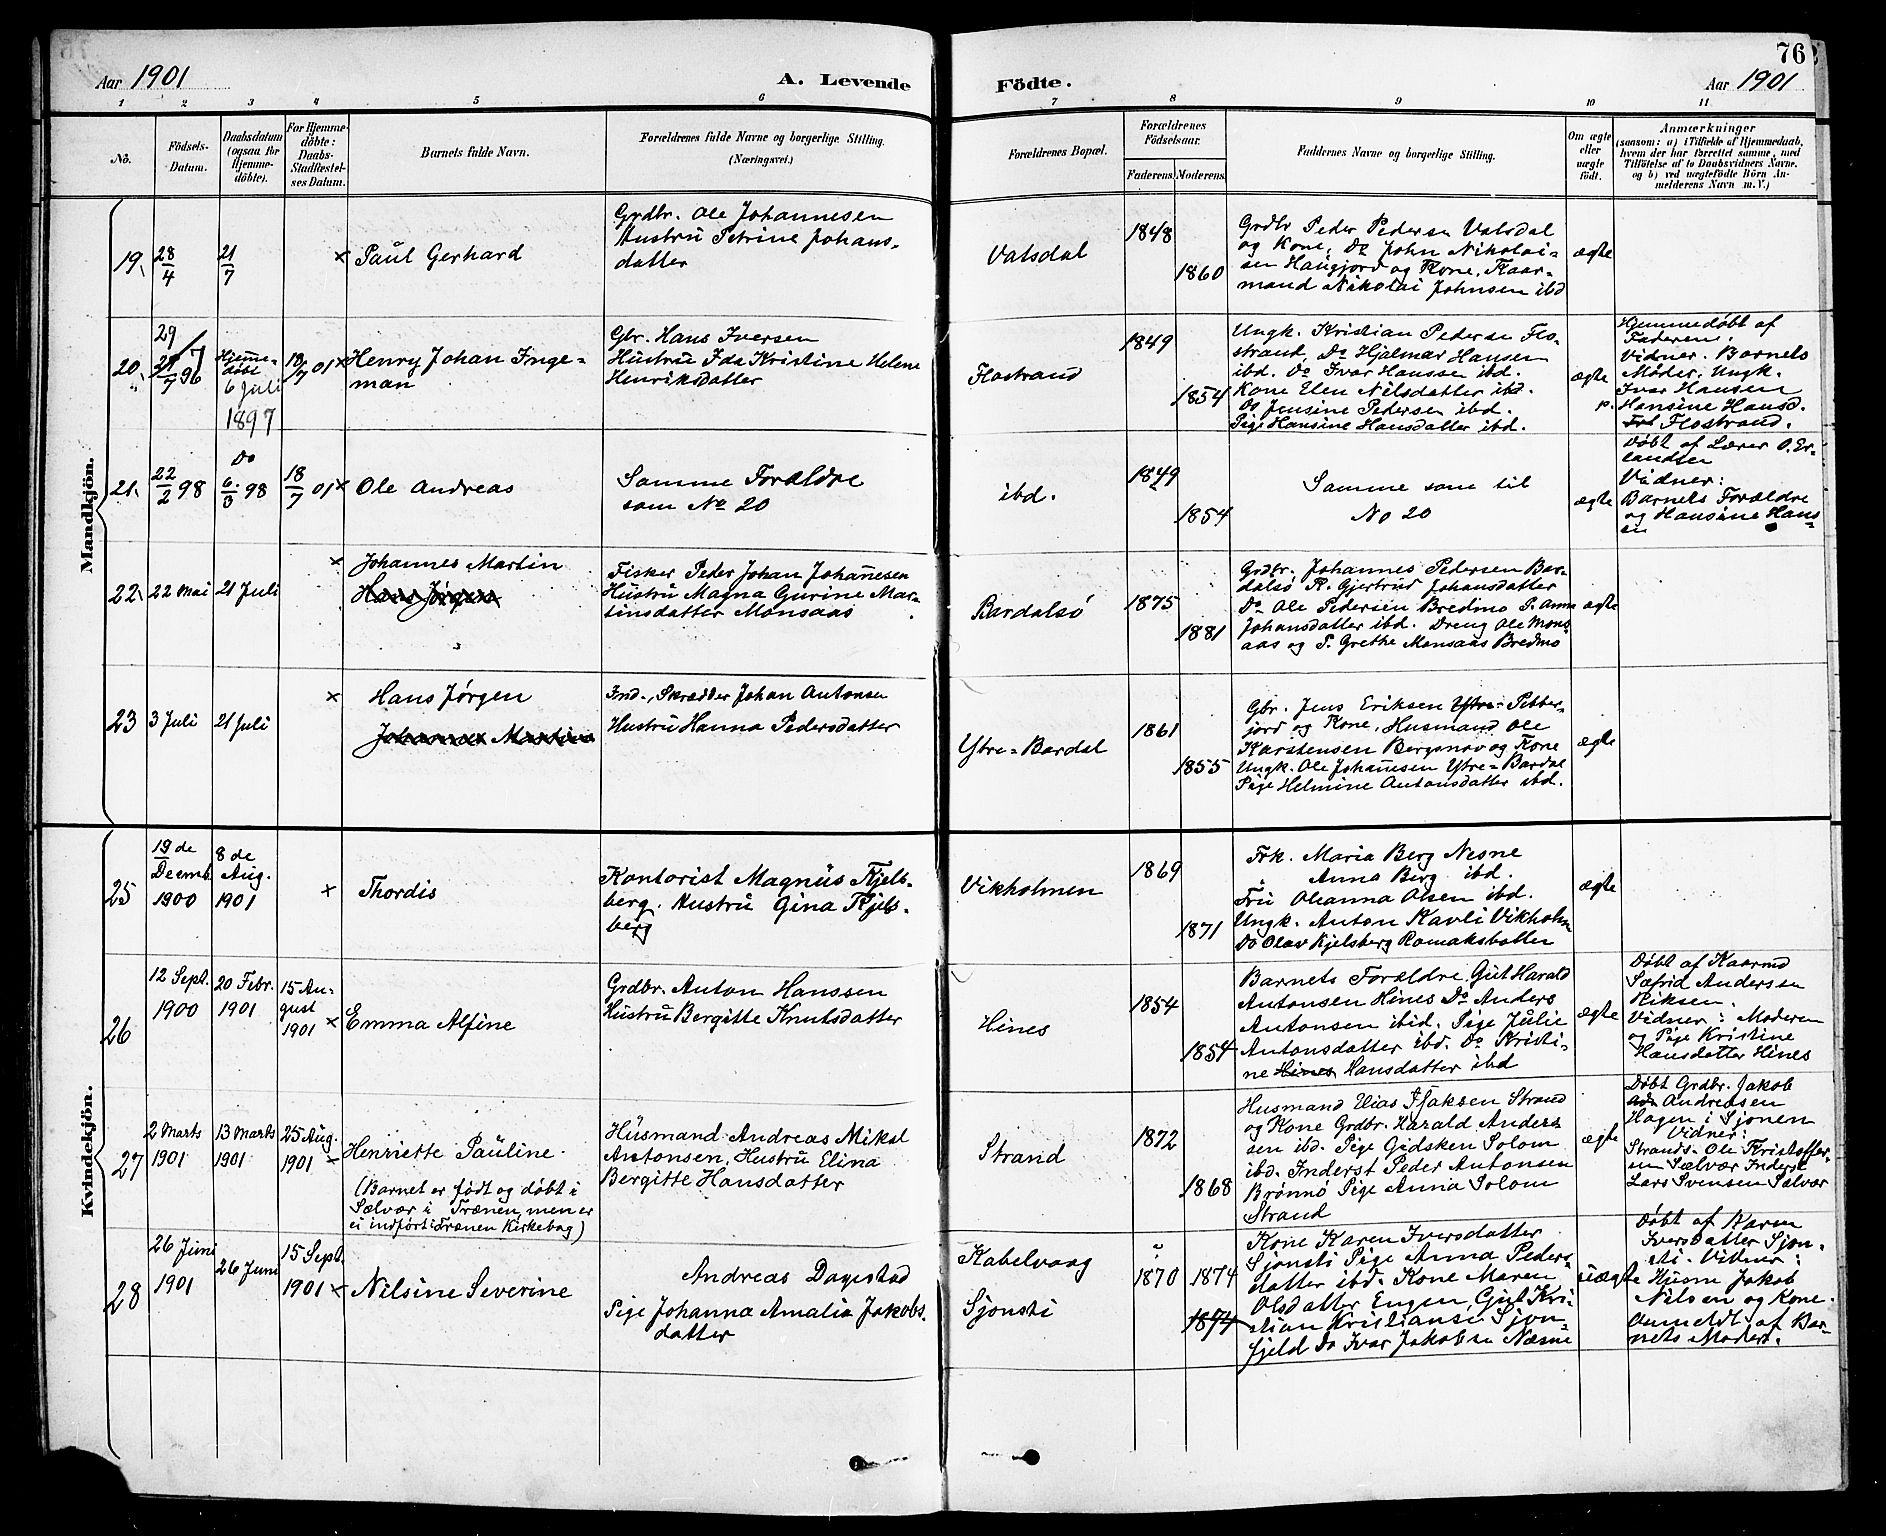 76
Aar 1901
A. Levende
Födte.
Aar 1901
1 2 3 4 5 6 7 8 9 10 11
No.
Födsels-
Datum.
Daabsdatum
(ogsaa for
Hjemme-
döbte).
For Hjemme-
döbte:
Daabs-
Stadfæstel-
ses Datum.
Barnets fulde Navn.
Forældrenes fulde Navne og borgerlige Stilling.
(Næringsvei.)
Forældrenes Bopæl.
Forældrenes
Födselsaar.
Faderens. Moderens.
Faddernes Navne og borgerlige Stilling.
Om ægte
eller
uægte
födt.
Anmærkninger
(saasom: a) i Tilfælde af Hjemmedaab,
hvem der har forrettet samme, med
Tilföielse af to Daabsvidners Navne,
og b) ved uægtefödte Börn An-
melderens Navn m. V.)
Mandkjön.
19.
28/4
21/7
× Paul Gerhard
Grdbr. Ole Johannesen
Hustru Petrine Johans-
datter
Valsdal
1848
1860
Grdbr Peder Pedersen Valsdal
og Kone, Do John Nikolai-
sen Haugjord og Kone, Kaar-
mand Nikolai Johnsen ibd
ægte
20.
29
7 96
Hjemme-
døbt
6 Juli
1897
18/7 01 ×
Henry Johan Inge-
man
Gbr. Hans Iversen
Hustru Ida Kristine Helene
Henriksdatter
Flostrand
1849
1854
Ungk. Kristian Pederse Flo-
strand, Do Hjalmar Hansen
ibd. Do Ivar Hanssen ibd.
Kone Elen Nilsdatter ibd.
Do Jensine Pedersen ibd.
Pige Hansine Hansdatter ibd.
ægte
p.
Hjemmedøbt af
Faderen.
Vidner. Barnets
Moder, Ungk.
Ivar Hansen
Hansine Hansd.
Flostrand.
21.
22/2 98
Do
6/3 98
18/7 01 ×
Ole Andreas
Samme Forældre
som No 20
ibd.
1849
1854
Samme som til
No 20
ægte
Døbt af Lærer O. Er-
landsen
Vidner:
Barnets Forældre
og Hansine Hans-
en
22.
22 Mai
21 Juli
× Johannes Martin
Hans Jørgen
Fisker Peder Johan Johannesen
Hustru Magna Gurine Mar-
tinsdatter Monsaas
Bardalsø
1875
1881
Grdbr. Johannes Pedersen Bar-
dalsø K. Gjertrud Johansdatter
Do Ole Pedersen Bredmo P. Anna
Johansdatter ibd. Dreng Ole Mons-
aas og P. Grethe Monsaas Bredmo
ægte
23
3 Juli
21 Juli
× Hans Jørgen
Johannes Martin
Ind., Skrædder Johan Antonsen
Hustru Hanna Pedersdatter
Ytre-Bardal
1861
1855
Gbr. Jens Eriksen Ytre- Petter-
jord og Kone, Husmand Ole
Karstensen Bergsnov og Kone
Ungk. Ole Johannesen Ytre-Bardal
Pige Helmine Antonsdatter ibd.
ægte
Kvindekjön.
25
19de
Decemb.
1900
8de
Aug.
1901
× Thordis
Kontorist Magnus Kjels-
berg. Hustru Gina Kjels-
berg
Vikholmen
1869
1871
Frk. Maria Berg Nesne
Anna Berg ibd.
Fru Oleanna Olsen ibd.
Ungk. Anton Kavli Vikholm
Do Olav Kjelsberg
ægte
26
12 Sept.
1900
20 Febr.
1901
15 Au-
gust
1901 ×
Emma Alfine
Grdbr. Anton Hanssen
Hustru Bergitte Knutsdatter
Hines
1854
1854
Barnets Forældre, Gut Harald
Antonsen Hines Do Anders
Antonsen ibid. Pige Julie
Antonsdatter ibd. Do Kristi-
ne Hines Hansdatter ibd
ægte
Døbt af Kaarmd
Sefrid Andersen
Viksen.
Vidner: Moderen
og Pige Kristine
Hansdatter Hines
27
2 Marts
1901
13 Marts
1901
25 Aug.
1901 ×
Henriette Pauline.
(Barnet er født og døbt i
Selvær i Trænen, men er
ei indført i Trænen Kirkebog)
Husmand Andreas Mikal
Antonsen, Hustru Elina
Bergitte Hansdatter
Strand
1872
1868
Husmand Elias Isaksen Strand
og Kone Grdbr. Harald Anders
sen ibd. Pige Gidsken Solom
ibd. Inderst Peder Antonsen
Brønnø Pige Anna Solom
Strand
ægte
Døbt Grdbr. Jakob
Andreasen
Hagen i Sjonen
Vidner:
Strands. Ole Kristoffer-
sen Selvær Inderst
Lars Svensen Selvær
28
26 Juni
1901
26 Juni
15 Sept.
1901 ×
Nilsine Severine
Andreas Dagestad
Pige Johanna Amalia Jakobs-
datter
Kabelvaag
Sjonsti
1870
1874
1894
Kone Karen Iversdatter
Sjonsti Pige Anna Peders-
datter ibd. Kone Maren
Olsdatter Engen, Gut Kri-
stian Kristianse Sjon-
fjeld Do Ivar Jakobsen Næsne
uægte
Døbt af Karen
Iversdatter Sjon-
sti. Vidner:
Husm Jakob
Nilsen og Kone.
Anmeldt af Bar-
nets Moder.